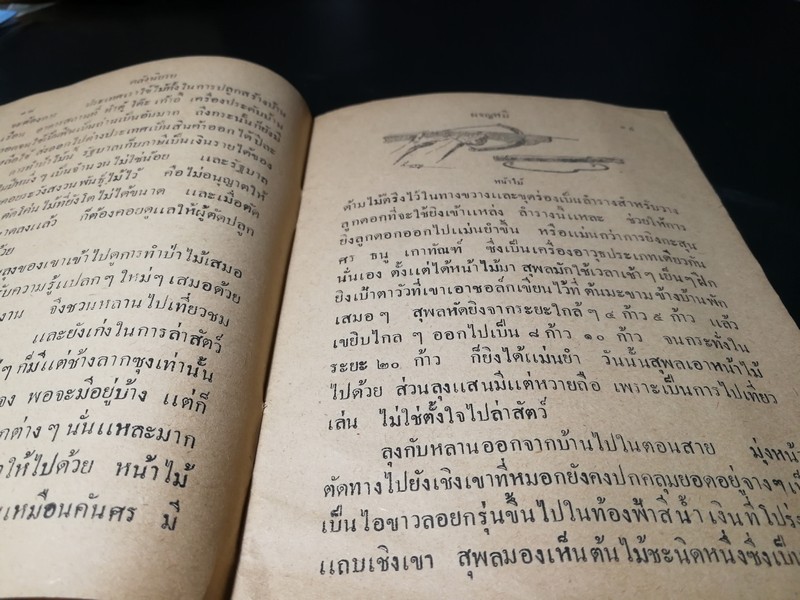 คลังนิยาย
ประเทศเราใช้ไม้ทั้งในการปลูกสร้างบ้าน
เรือน
เครื่องประดับบ้าน
ส่งออกไปต่างประเทศเป็นสินค้าออกได้ปีละ
รัฐบาลเก็บภาษีเป็นเงินรายได้ของ
เป็นจำนวนไม่ใช่น้อย และรัฐบาล
สงวนพันธุ์ไม้ไว้ คือไม่อนุญาตให้
ตัดโค่นไม้ที่ยังโตไม่ได้ขนาด และเมื่อตัด
ลงแล้ว ก็ต้องคอยดูแลให้ผู้ตัดปลูก
ด้วย
ลุงของเขาเข้าไปดูการทำป่าไม้เสมอ
ความรู้แปลกๆ ใหม่ๆ เสมอด้วย
งาน จึงชวนหลานไปเที่ยวชม
และยังเก่งในการล่าสัตว์
ๆ ก็มีแต่ช้างลากซุงเท่านั้น
พอจะมีอยู่บ้าง แต่ก็
ต่างๆ นั่นแหละมาก
ให้ไปด้วย หน้าไม้
เหมือนคันศร มี
ผจญพนา
๑๕
หน้าไม้
ด้ามไม้ตรึงไว้ในทางขวางและขุดร่องเป็นลำรางสำหรับวาง
ลูกดอกที่จะใช้ยิงเข้าแหล่ง ลำรางนี้แหละ ช่วยให้การ
ยิงลูกดอกออกไปแม่นยำขึ้น หรือแม่นกว่าการยิงกะสุน
ศร ธนู เกาทัณฑ์ ซึ่งเป็นเครื่องอาวุธประเภทเดียวกัน
นั่นเอง ตั้งแต่ได้หน้าไม้มา สุพลมักใช้เวลาเช้าๆ เย็นๆ ฝึก
ยิงเป้าตาวัวที่เขาเอาชอล์กเขียนไว้ที่ ต้นมะขามข้างบ้านพัก
เสมอๆ สุพลหัดยิงจากระยะใกล้ๆ ๔ ก้าว ๕ ก้าว แล้ว
เขยิบไกลๆ ออกไปเป็น ๘ ก้าว ๑๐ ก้าว จนกระทั่งใน
ระยะ ๒๐ ก้าว ก็ยิงได้แม่นยำ วันนั้นสุพลเอาหน้าไม้
ไปด้วย ส่วนลุงแสนมีแต่หวายถือ เพราะเป็นการไปเที่ยว
เล่น ไม่ใช่ตั้งใจไปล่าสัตว์
ลุงกับหลานออกจากบ้านไปในตอนสาย มุ่งหน้า
ตัดทางไปยังเชิงเขาที่หมอกยังคงปกคลุมยอดอยู่จางๆ
เป็นไอขาวลอยกรุ่นขึ้นไปในท้องฟ้าสีน้ำเงินที่โปร่ง
แถบเชิงเขา สุพลมองเห็นต้นไม้ชะนิดหนึ่งซึ่งเป็น